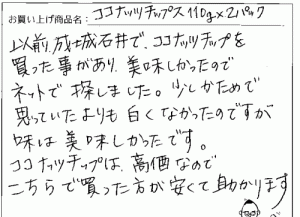 お買い上げ商品名: ココナッツチップス 110g×2パック
以前、成城石井で、ココナッツチップを
買った事があり、美味しかったので
ネットで探しました。少しかためで
思っていたよりも白くなかったのですが
味は美味しかったです。
ココナッツチップは、高価なので
こちらで買った方が安くて助かります